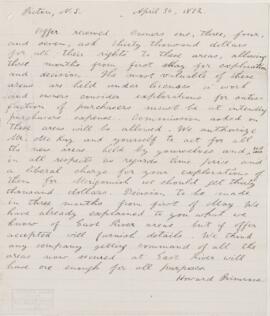 Pictou, N.S. April 30, 1882.
Offer received. Owners one, three, four,
and seven, ask thirty thousand dollars
for all their rights to these areas, allowing
three months from first May for exploration
and decision. The most valuable of these
areas are held under licenses to work
and owners consider explorations for satis-
faction of purchasers must be at intending
purchasers expense. Commission asked on
these areas will be allowed. We authorize
and yourself to act for all
the new areas held by yourselves and
in all respects as regards time
a liberal charge for your explorations of
them for we should get thirty
thousand dollars. Decision to be made
in three months from first of May. We
have already explained to you what we
know of East River areas but if offer
accepted will furnish details. We think
any company getting command of all the
areas now secured at East River will
have ore enough for all purposes.
Howard Primrose